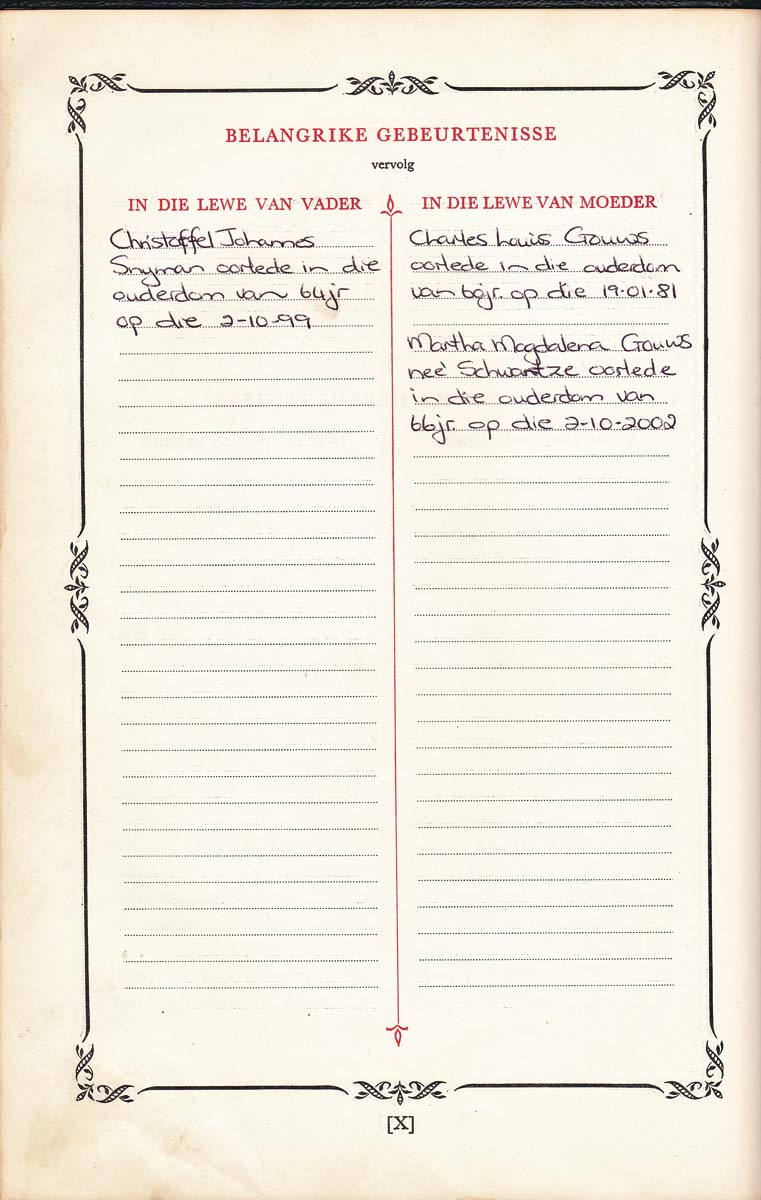 BELANGRIKE GEBEURTENISSE
vervolg
IN DIE LEWE VAN VADER
Christoffel Johannes
Snyman oorlede in die
ouderdom van 64jr
op die 2-10-99
IN DIE LEWE VAN MOEDER
Charles Louis Gouws
oorlede in die ouderdom
van op die 19.01.81
Martha Magdalena Gouws
neé Schwartze oorlede
in die ouderdom van
66jr. op die 2-10-2002
[X]